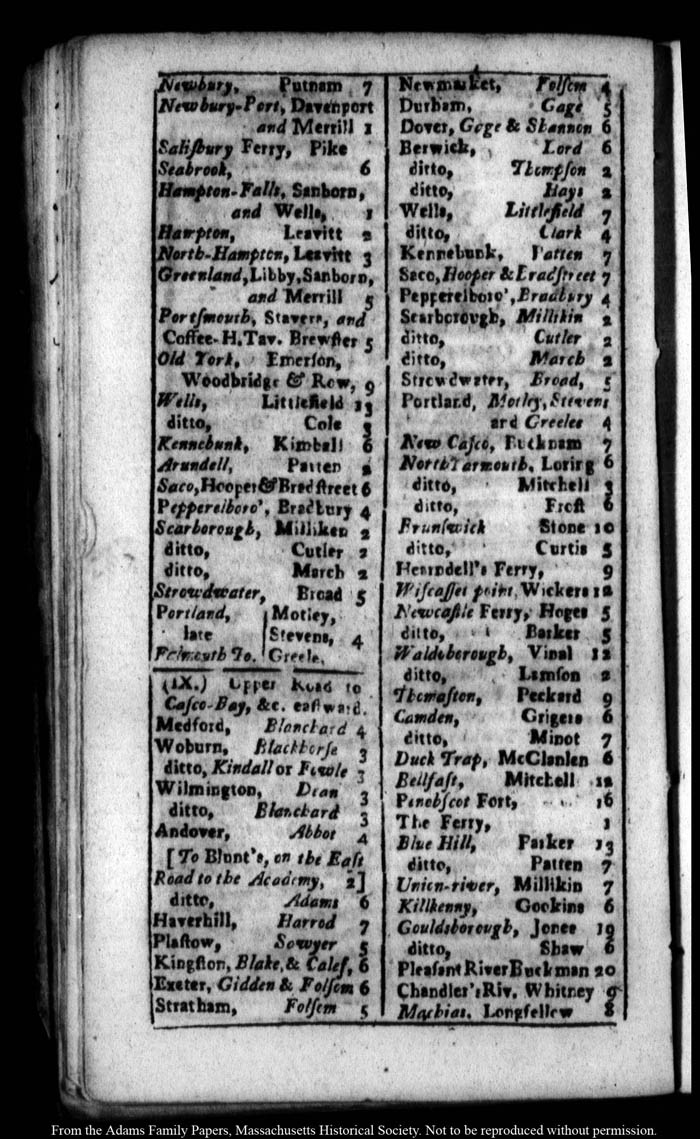 Newbury, Putnam 7
Newbury-Port, Davenport
and Merrill 1
Saliſbury Ferry, Pike
Seabrook, 6
Hampton-Falls, Sanborn,
and Wells, 1
Hampton, Leavitt 2
North-Hampton, Leavitt 3
Greenland, Libby, Sanborn,
and Merrill 5
Portſmouth, Stavers, and
Coffee-H. Tav. Brewſter 5
Old York, Emerſon,
Woodbridge & Row, 9
Wells, Littlefield 13
ditto, Cole 3
Kennebunk, Kimball 6
Arundell, Patten 2
Saco, Hooper & Bradſtreet 6
Pepperelboro', Bradbury 4
Scarborough, Milliken 2
ditto, Cutler 2
ditto, March 2
Strowdwater, Broad 5
Portland, Motley,
late Stevens, 4
Falmouth To. Greele.
(IX.) Upper Road to
Caſco-Bay, &c. eaſtward.
Medford, Blanchard 4
Woburn, Blackhorſe 3
ditto, Kindall or Fowle 3
Wilmington, Dean 3
ditto, Blanchard 3
Andover, Abbot 4
[To Blunt's, on the Eaſt
Road to the Academy, 2]
ditto, Adams 6
Haverhill, Harrod 7
Plaſtow, Sowyer 5
Kingſton, Blake, & Calef, 6
Exeter, Gidden & Folſom 6
Stratham, Folſom 5
Newmarket, Folſom 4
Durham, Gage 5
Dover, Gage & Shannon 6
Berwick, Lord 6
ditto, Thompſon 2
ditto, Hays 2
Wells, Littlefield 7
ditto, Clark 4
Kennebunk, Patten 7
Saco, Hooper & Bradſtreet 7
Pepperelboro', Bradbury 4
Scarborough, Millikin 2
ditto, Cutler 2
ditto, March 2
Strowdwater, Broad, 5
Portland, Motley, Stevens
and Greelee 4
New Caſco, Bucknam 7
North Yarmouth, Loring 6
ditto, Mitchell 3
ditto, Froſt 6
Brunſwick Stone 10
ditto, Curtis 5
Ferry, 9
Wiſcaſſet point, Wickers 12
Newcaſtle Ferry, Hoges 5
ditto, Barker 5
Waldoborough, Vinal 12
ditto, Lamſon 2
Thomaſton, Peckard 9
Camden, Grigers 6
ditto, Minot 7
Duck Trap, McClanlen 6
Bellfaſt, Mitchell 12
Penobſcot Fort, 16
The Ferry, 1
Blue Hill, Parker 13
ditto, Patten 7
Union-river, Millikin 7
Killkenny, Gockins 6
Gouldsborough, Jones 19
ditto, Shaw 6
Pleaſant River Buckman 20
Chandler's Riv. Whitney 9
Machias, Longfellow 8
From the Adams Family Papers, Massachusetts Historical Society. Not to be reproduced without permission.